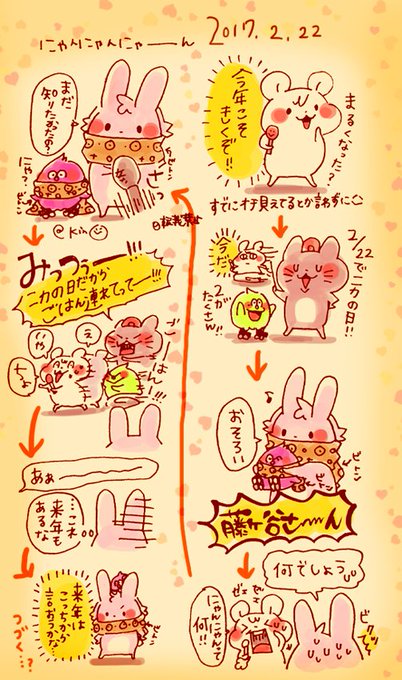 にゃんにゃんにゃーーん
2017.2.22
今年こそ
きくぞ!!
まるくなった?
すでにオチ見えてるとか言わずに
2/22で二カの日!!
今だ
2が
たくさん!!
おそろい
ビトン
ビトン
藤ヶ谷さーーん
何でしょう
ビクッ
ゼェ
ゼェ
にゃんにゃんにゃんて
何!!
まだ
知りたかったの?
にゃ?
さっ
みっつぅーー!!!
二カの日だから
ごはん連れてってーー!!!
え
ちょ
ごはーん!!!
あぁ
…これ
来年も
あるな
来年は
こっちから
言おっかな
ビトン
つづく…?